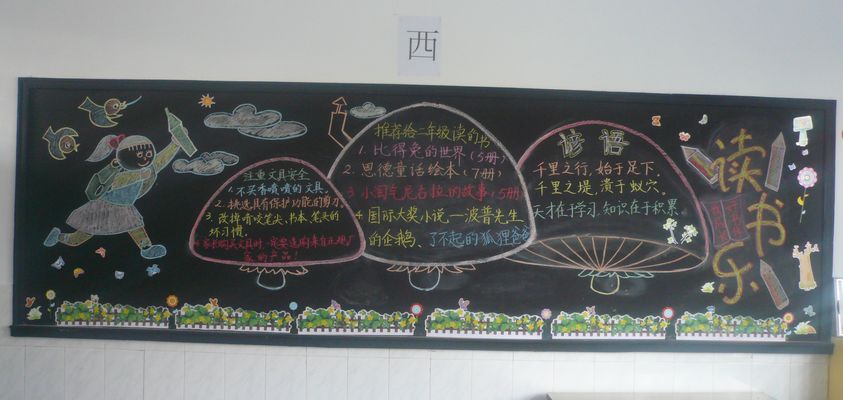 西
注重文具安全
1.不买香喷喷的文具。
2.挑选具有保护功能的剪刀
3.改掉啃咬笔尖、书本、笔夹的
坏习惯。
4.家长购买文具时一定要选购来自正规厂
家的产品!
推荐给二年级读的书
1.比得兔的世界(5册)
2.恩德童话绘本(7册)
3.小国王尼古拉的故事(5册
4国际大奖小说,一波普先生
的企鹅、了不起的狐狸爸爸
谚语
千里之行,始于足下,
千里之堤,溃于蚁穴。
天才在于学习,知识在于积累。
读书乐